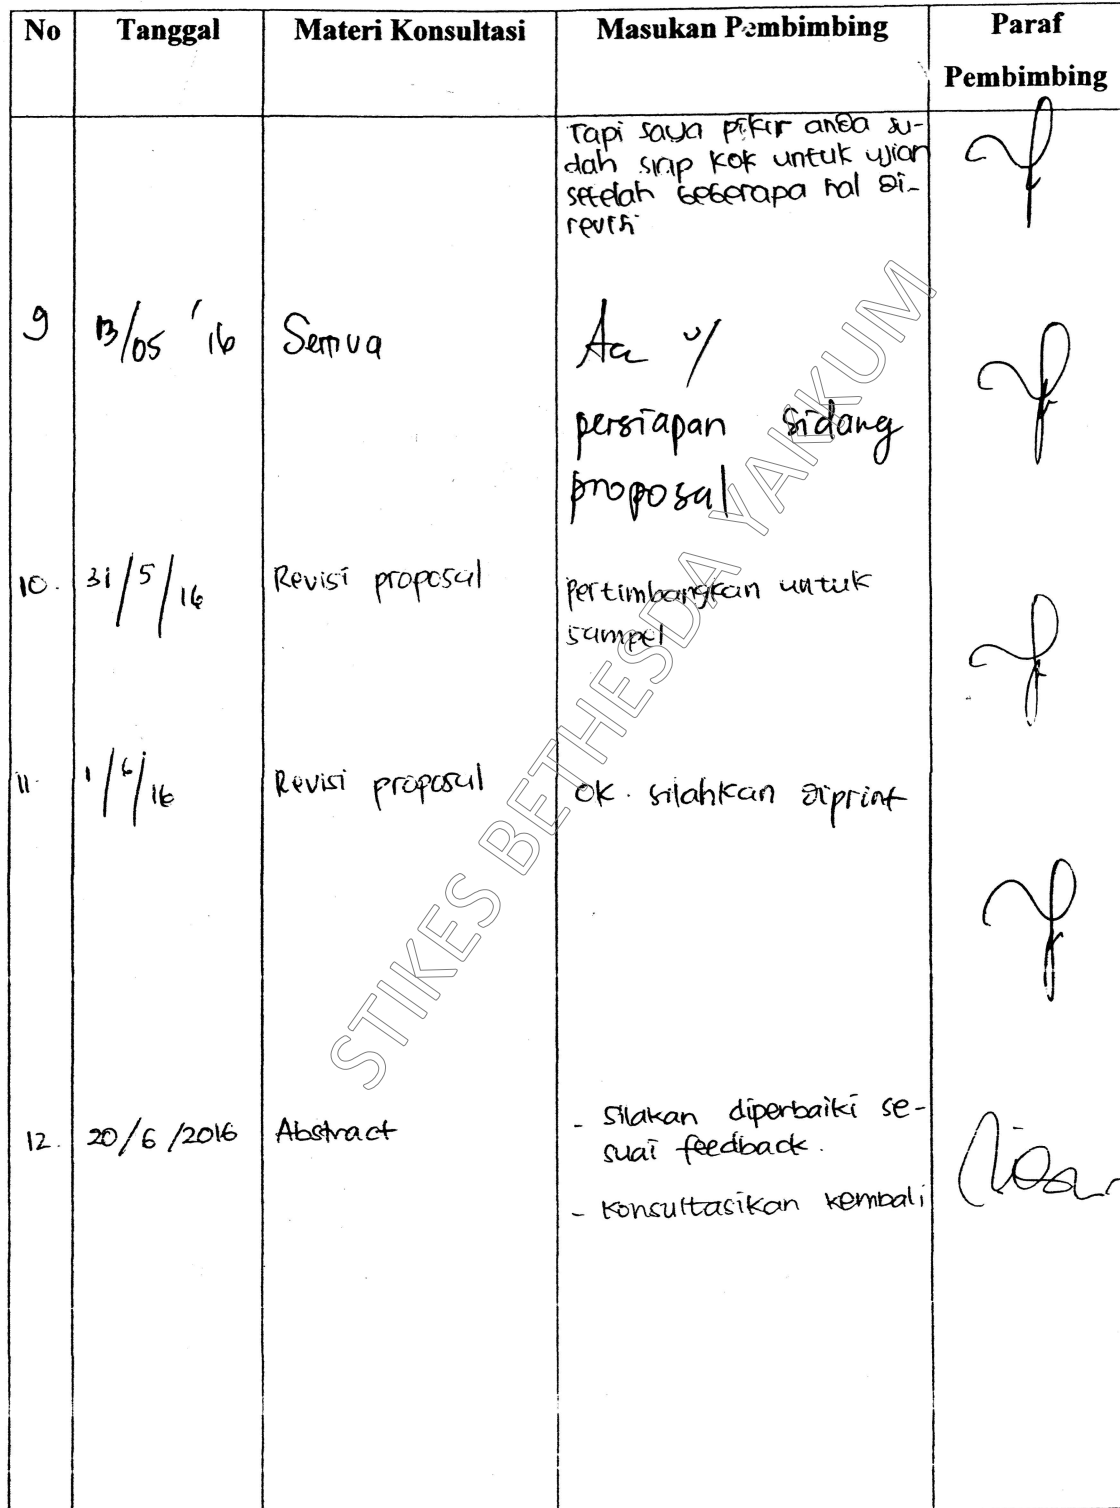 No Tanggal Materi Konsultasi Masukan Pembimbing Paraf
Pembimbing
Tapi saya pikir anda su-
dah siap kok untuk ujian
setelah beberapa hal di-
revisi
9 13/05 '16 Semua Acc u/
persiapan sidang
proposal
10. 31/5/16 Revisi proposal pertimbangkan untuk
sampel
11. 1/6/16 Revisi proposal OK. silahkan diprint
12. 20/6/2016 Abstract - silakan diperbaiki se-
suai feedback.
- konsultasikan kembali
STIKES BETHESDA YAKKUM